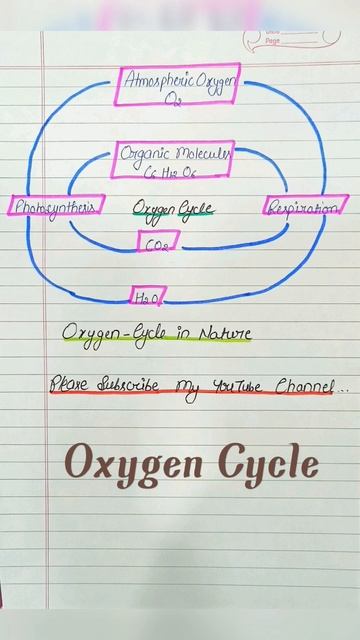 Page
Atmospheric Oxygen
O2
Organic Molecules
C6 H12 O6
Photosynthesis
Oxygen Cycle
Respiration
CO2
H2O
Oxygen-Cycle in Nature
Please Subscribe My YouTube Channel...
Oxygen Cycle